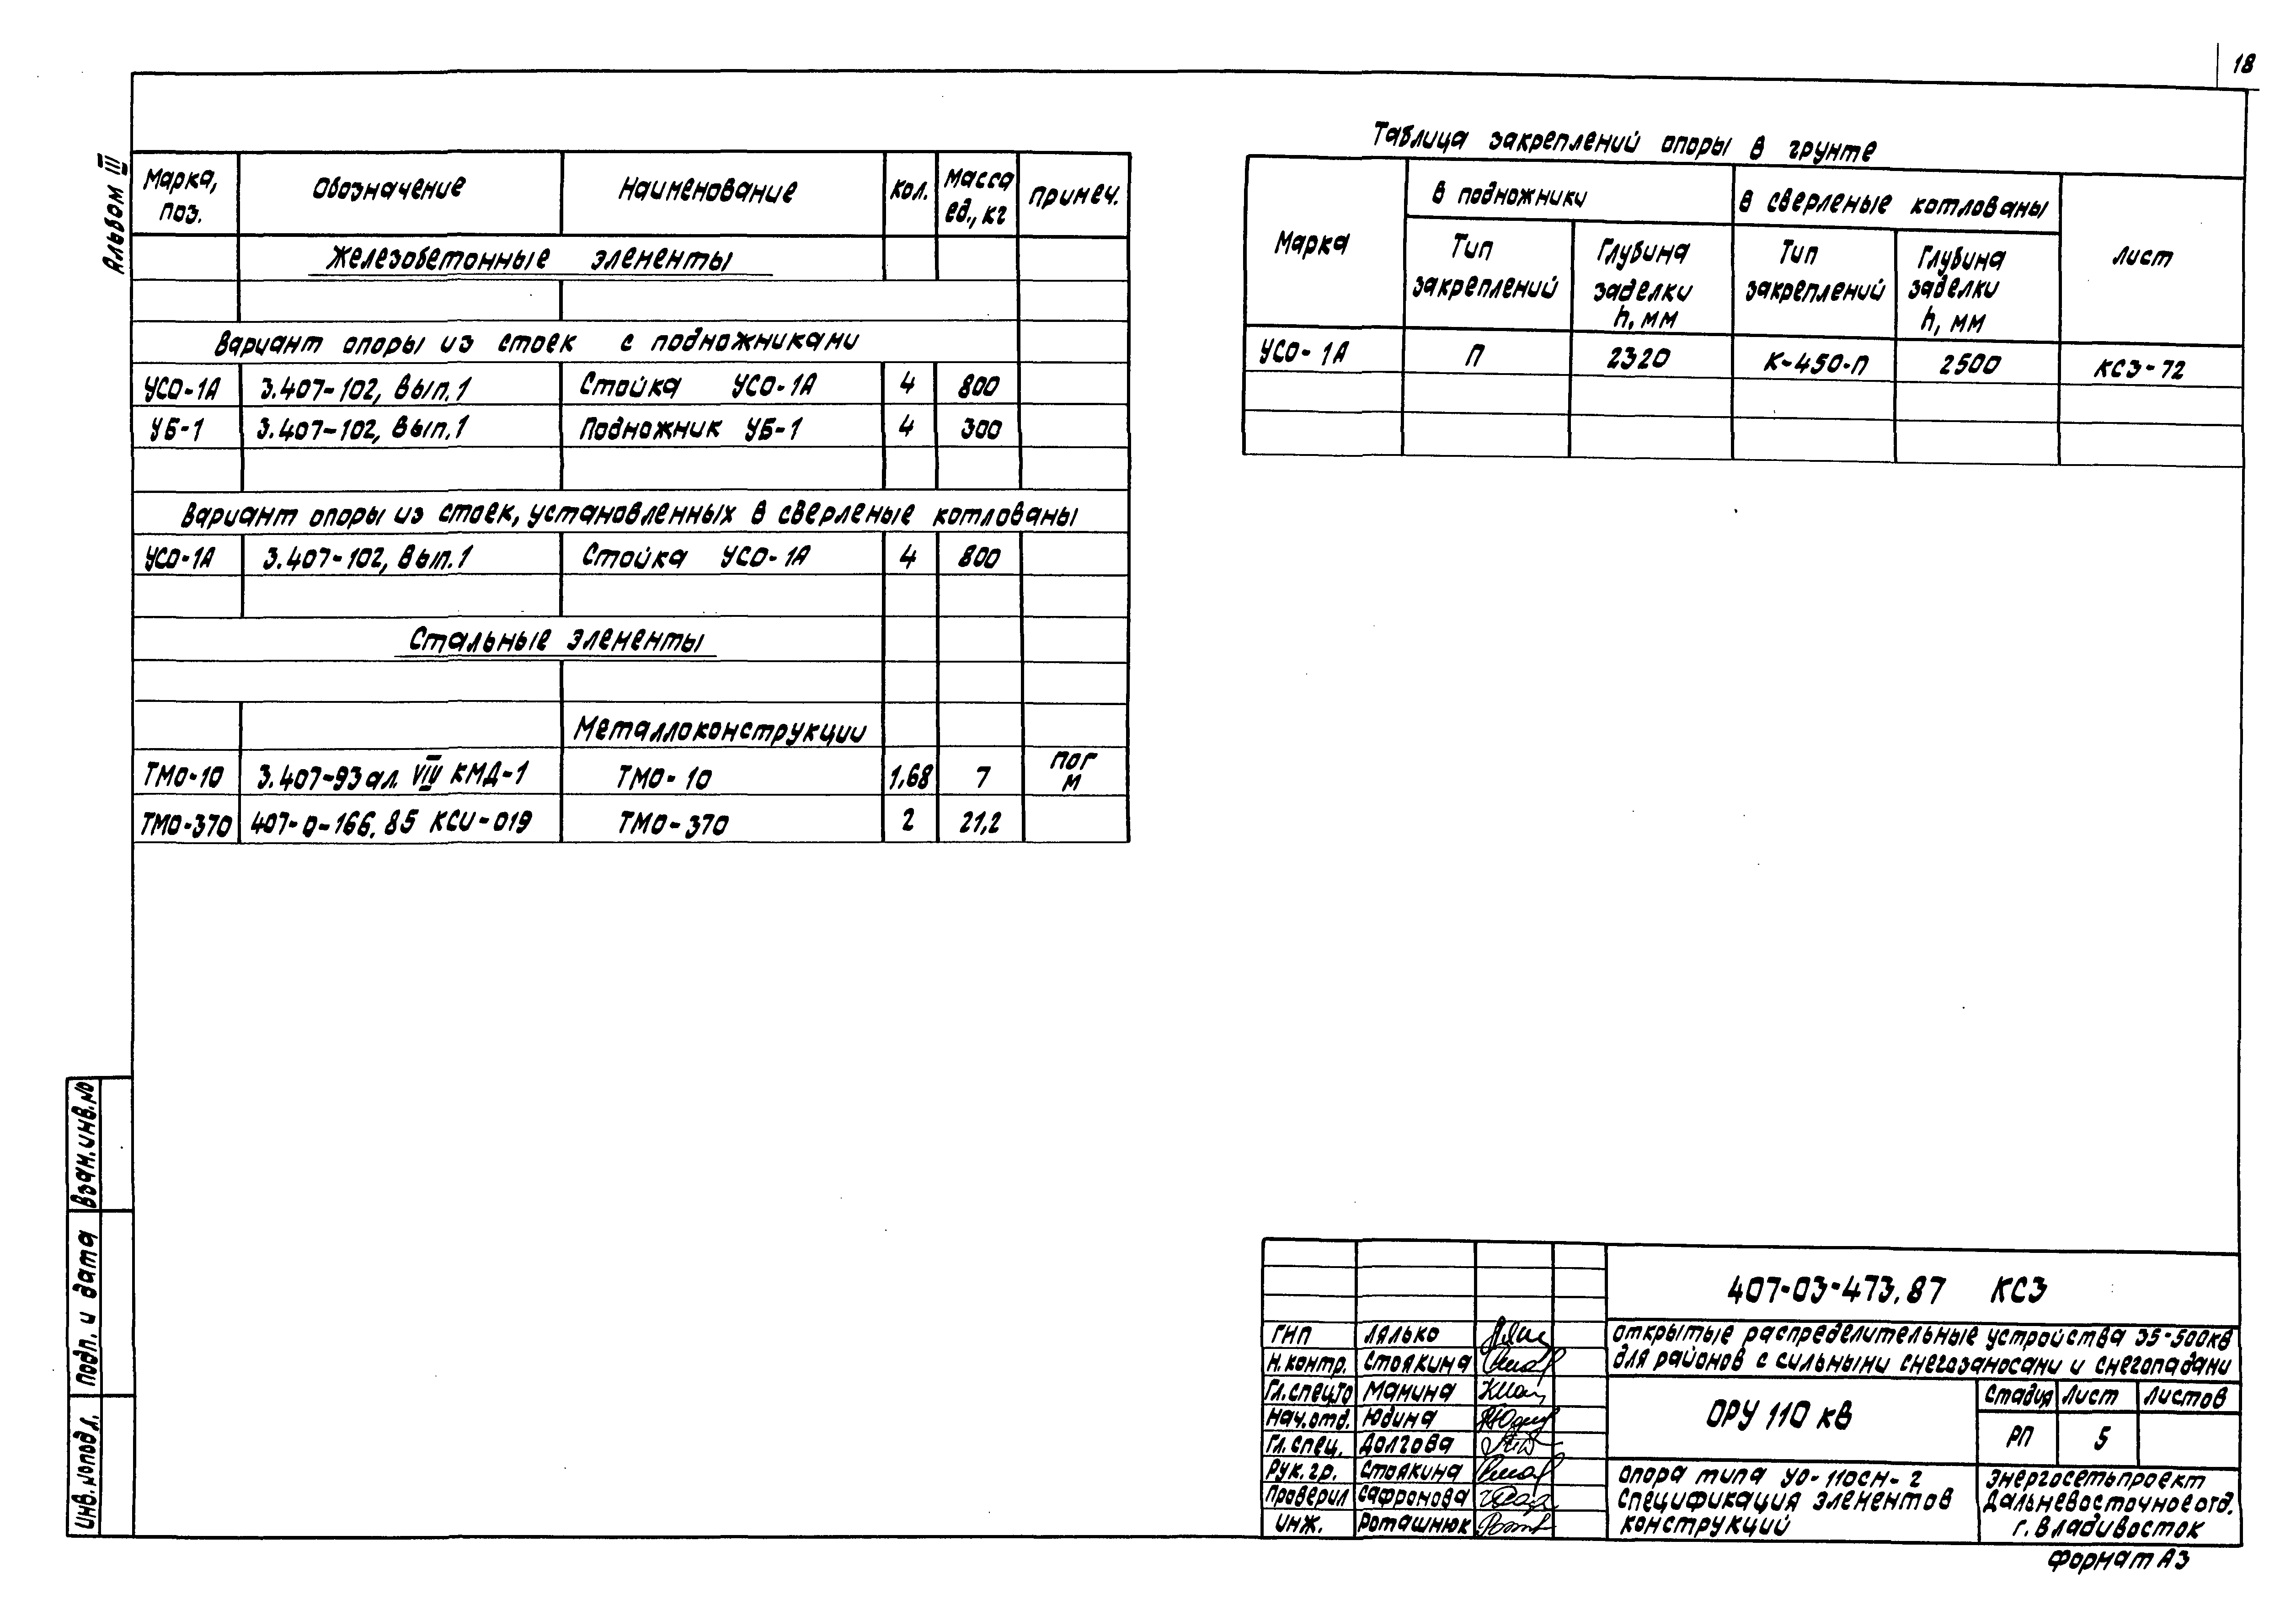 18
Альбом III
Марка, поз. Обозначение Наименование Кол. Масса ед., кг Примеч.
Железобетонные элементы
Вариант опоры из стоек с подножниками
УСО-1А 3.407-102, Вып.1 Стойка УСО-1А 4 800
УБ-1 3.407-102, Вып.1 Подножник УБ-1 4 300
Вариант опоры из стоек, установленных в сверленые котлованы
УСО-1А 3.407-102, Вып.1 Стойка УСО-1А 4 800
Стальные элементы
Металлоконструкции
ТМО-10 3.407-93 ал. VIIV КМД-1 ТМО-10 1,68 7 пог м
ТМО-370 407-0-166.85 КСИ-019 ТМО-370 2 21,2
Таблица закреплений опоры в грунте
Марка В подножники В сверленые котлованы Лист
Тип закреплений Глубина заделки h, мм Тип закреплений Глубина заделки h, мм
УСО-1А П 2320 К-450-П 2500 КС3-72
Взам.инв.№
Подп. и дата
Инв.№подл.
407-03-473.87 КС3
Открытые распределительные устройства 35-500кВ
для районов с сильными снегозаносами и снегопадами
ГИП Лялько
Н.контр. Стоякина
Гл.спец.ТО Манина
Нач.отд. Юдина
Гл.спец. Долгова
Рук.гр. Стоякина
Проверил Сафронова
Инж. Роташнюк
ОРУ 110 кВ
Стадия Лист Листов
РП 5
Опора типа УО-110СН-2
Спецификация элементов
конструкций
Энергосетьпроект
Дальневосточное отд.
г. Владивосток
Формат А3